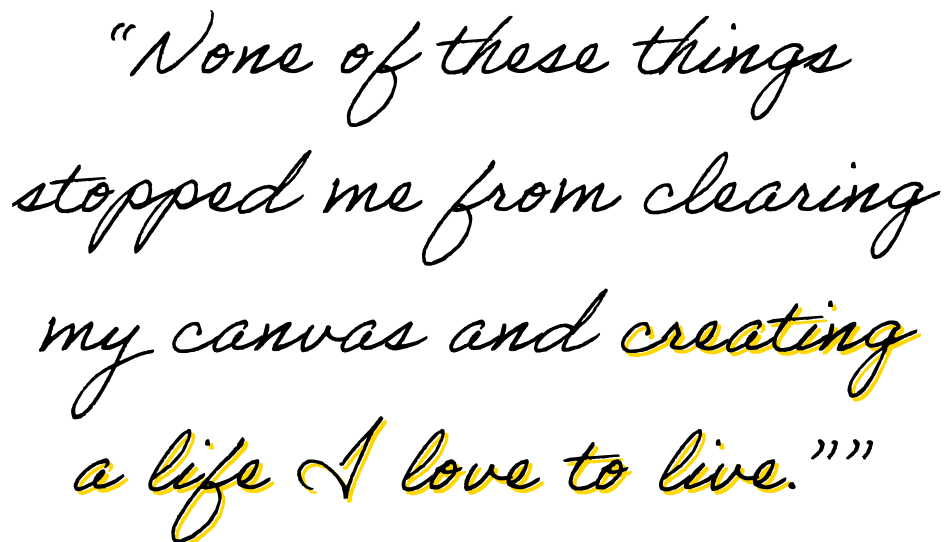 “None of these things
stopped me from clearing
my canvas and creating
a life I love to live.””